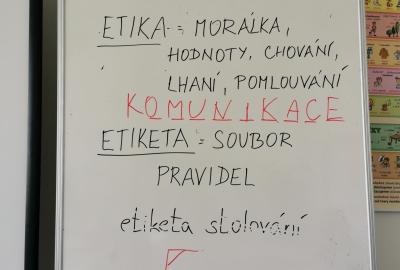 ETIKA = MORÁLKA,
HODNOTY, CHOVÁNÍ,
LHANÍ, POMLOUVÁNÍ
KOMUNIKACE
ETIKETA = SOUBOR
PRAVIDEL
etiketa stolování